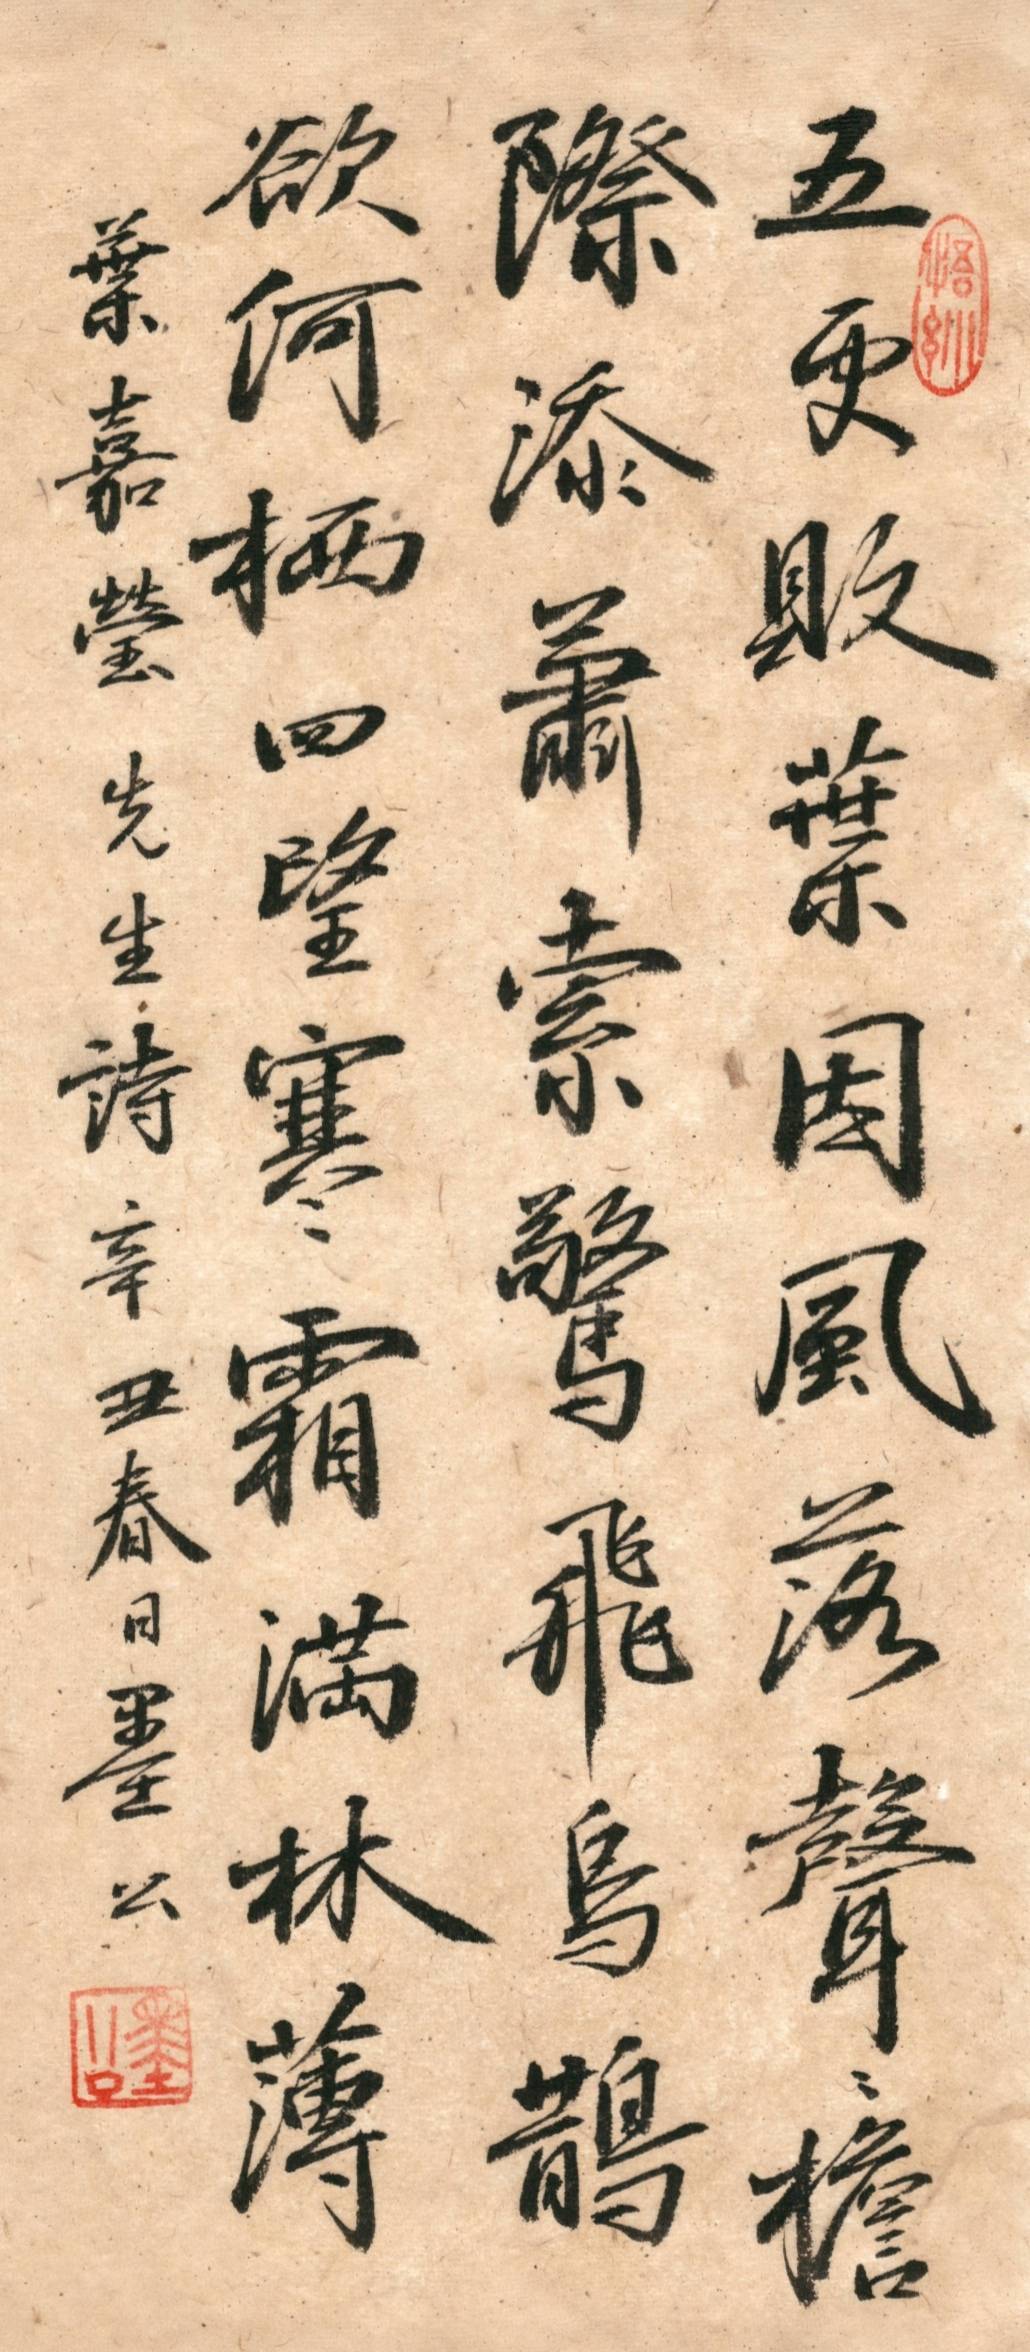 五更敗葉因風落聲聲檐
際添蕭索驚飛烏鵲
欲何栖四望寒寒霜滿林薄
葉嘉瑩先生詩辛丑春日墨公
墨公